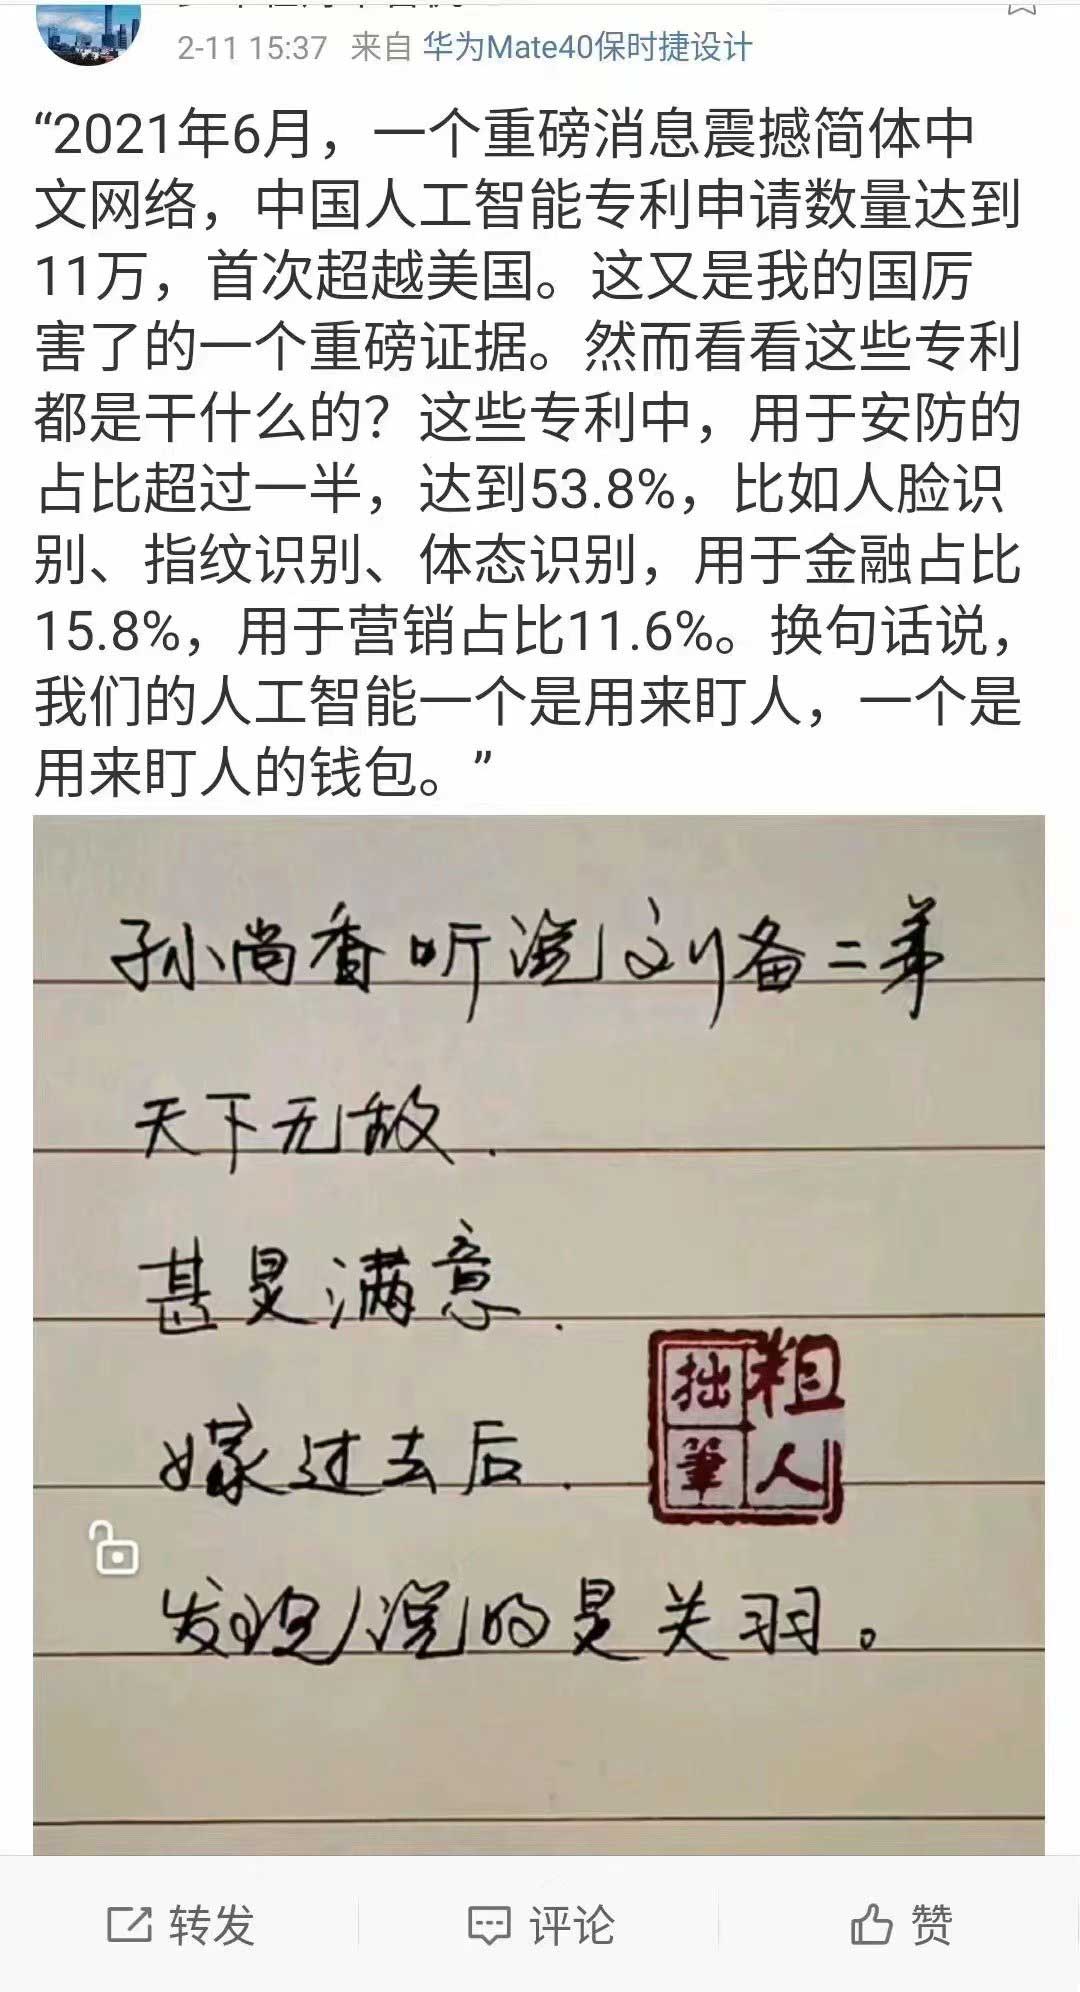 2-11 15:37 来自 华为Mate40保时捷设计
“2021年6月，一个重磅消息震撼简体中
文网络，中国人工智能专利申请数量达到
11万，首次超越美国。这又是我的国厉
害了的一个重磅证据。然而看看这些专利
都是干什么的？这些专利中，用于安防的
占比超过一半，达到53.8%，比如人脸识
别、指纹识别、体态识别，用于金融占比
15.8%，用于营销占比11.6%。换句话说，
我们的人工智能一个是用来盯人，一个是
用来盯人的钱包。”
孙尚香听说刘备二弟
天下无敌.
甚是满意.
嫁过去后.
粗人
拙筆
发现说的是关羽。
转发 评论 赞